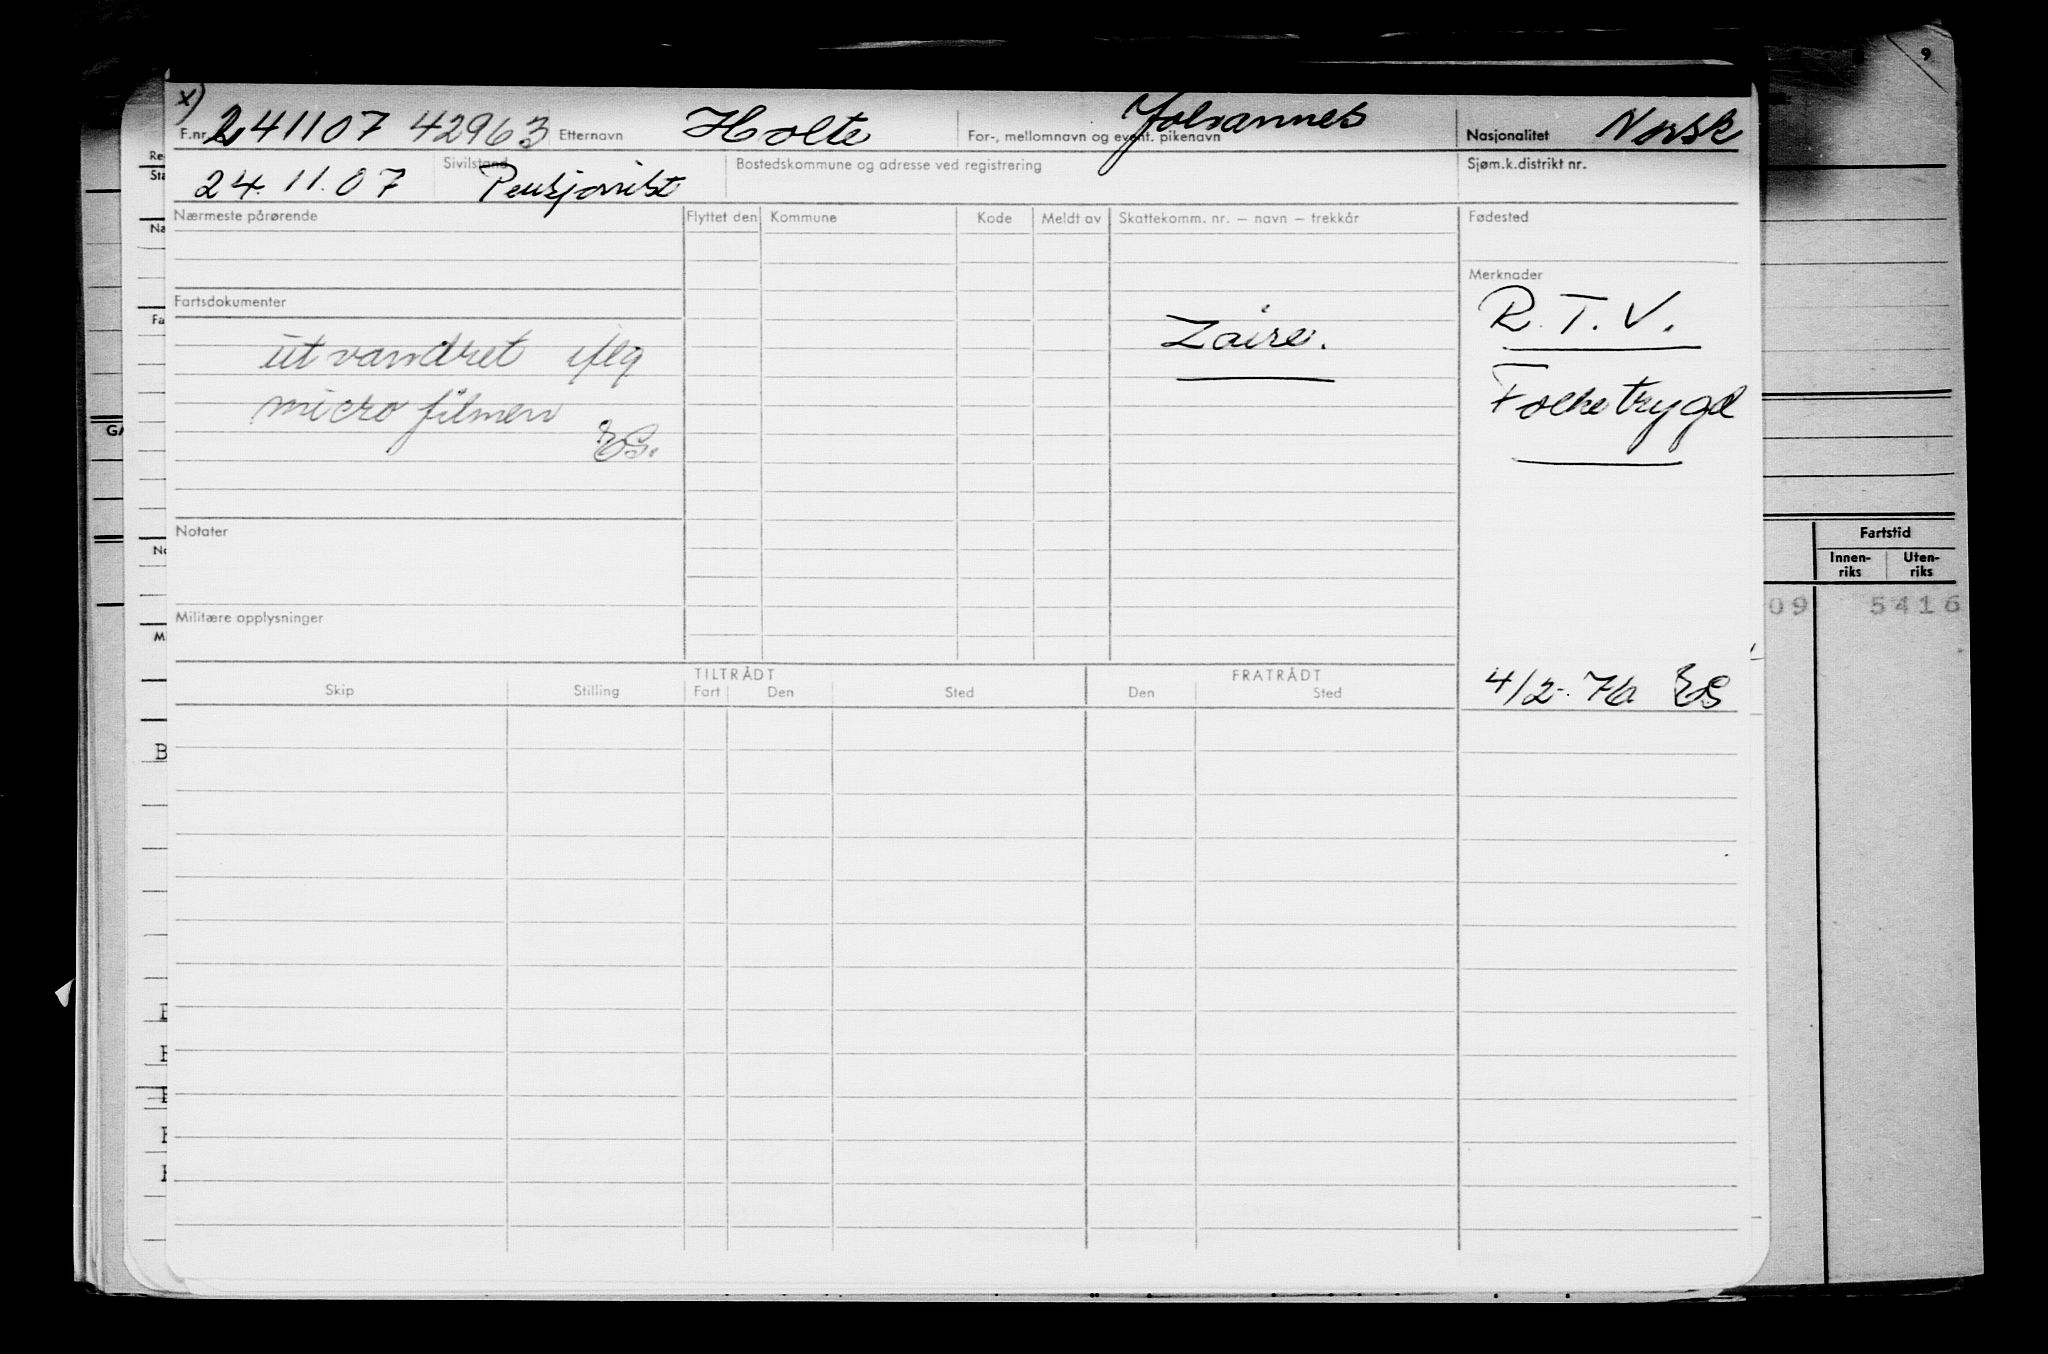 x)
F.nr. 241107 42963 Etternavn Holte For-, mellomnavn og event. pikenavn Johannes Nasjonalitet Norsk
24.11.07 Sivilstand Pensjonist Bostedskommune og adresse ved registrering Sjøm.k.distrikt nr.
Nærmeste pårørende Flyttet den Kommune Kode Meldt av Skattekomm. nr. – navn – trekkår Fødested
Merknader
Fartsdokumenter
R.T.V.
Zaire.
utvandret iflg
Folketrygd
micro filmen
ES.
Notater
Militære opplysninger
4/2-76 ES
TILTRÅDT FRATRÅDT
Skip Stilling Fart Den Sted Den Sted
9
Fartstid
Innen-riks Uten-riks
09 5416